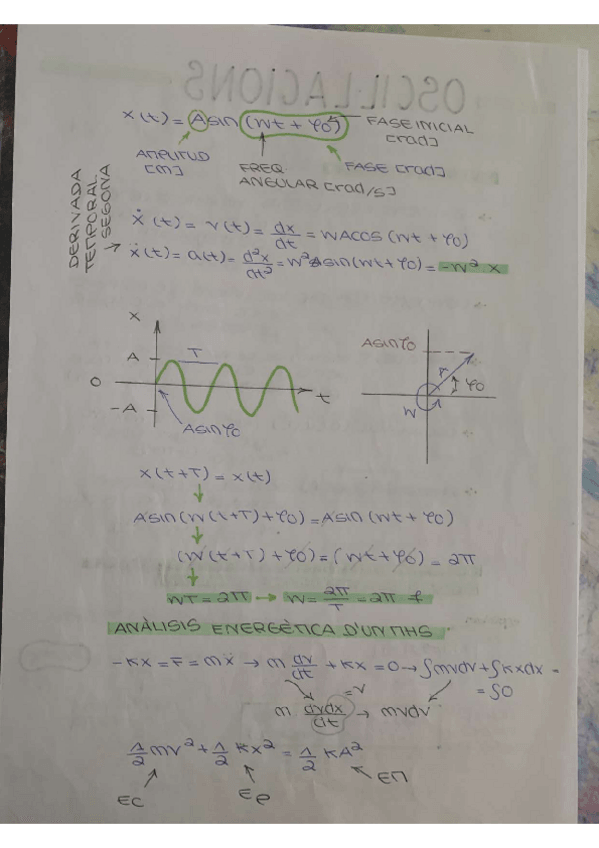 OSCIL·LACIONS
x(t) = A sin (wt + φ0)
FASE INICIAL [rad]
AMPLITUD [m]
FREQ. ANGULAR [rad/s]
FASE [rad]
DERIVADA TEMPORAL SEGONA
ẋ(t) = v(t) = dx/dt = wA cos (wt + φ0)
ẋ(t) = a(t) = d²x/dt² = w²A sin(wt + φ0) = -w² x
x
A
T
0
-A
t
A sin φ0
A sin φ0
r
φ0
w
x(t+T) = x(t)
A sin(w(t+T) + φ0) = A sin (wt + φ0)
(w(t+T) + φ0) = (wt + φ0) = 2π
wT = 2π → w = 2π/T = 2π f
ANÀLISIS ENERGÈTICA D'UN MHS
-Kx = F = mẍ → m dv/dt + Kx = 0 → ∫mvdv + ∫Kxdx =
= ∫0
= v
m dvdx/dt → mvdv
1/2 mv² + 1/2 Kx² = 1/2 KA²
Ec
Ep
Em